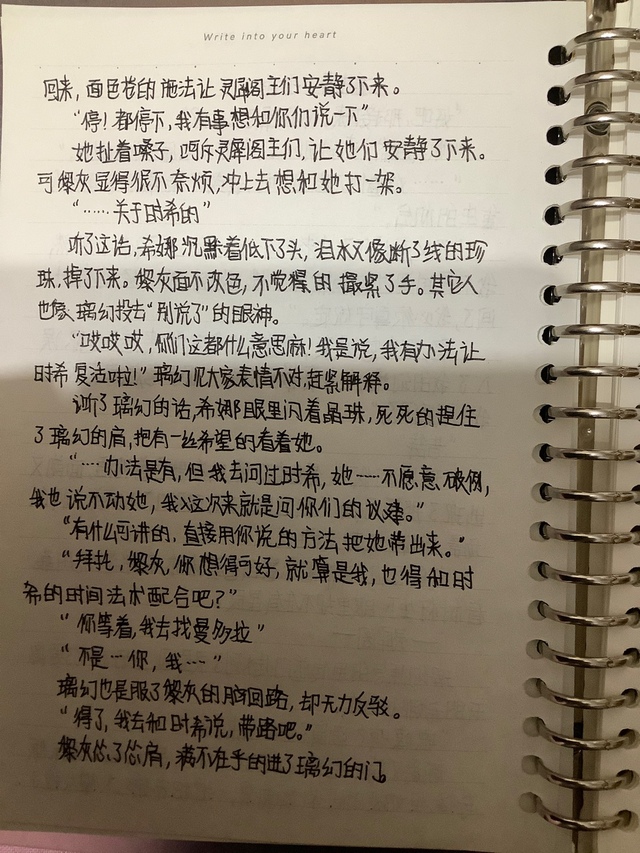 Write into your heart
回来,面色苍的施法让灵犀阁主们安静了下来。
“停!都停下,我有事想和你们说一下”
她扯着嗓子,呵斥灵犀阁主们,让她们安静了下来。
可黎灰显得很不奈烦,冲上去想和她打一架。
“……关于时希的”
听了这话,希娜沉默着低下了头,泪水又像断了线的珍
珠,掉了下来。黎灰面不改色,不觉得的撮紧了手。其它人
也像璃幻投去“别说了”的眼神。
“哎哎哎,你们这都什么意思麻!我是说,我有办法让
时希复活啦!”璃幻见大家表情不对,赶紧解释。
听了璃幻的话,希娜眼里闪着晶珠,死死的捏住
了璃幻的肩,把有一丝希望的看着她。
“……办法是有,但我去问过时希,她……不愿意破例,
我也说不动她,我这次来就是问你们的议建。”
“有什么可讲的,直接用你说的方法把她带出来。”
“拜托,黎灰,你想得可好,就算是我,也得和时
希的时间法术配合吧?”
“你等着,我去找曼多拉”
“不是…你,我……”
璃幻也是服了黎灰的脑回路,却无力反驳。
“得了,我去和时希说,带路吧。”
黎灰怂了怂肩,满不在乎的进了璃幻的门。